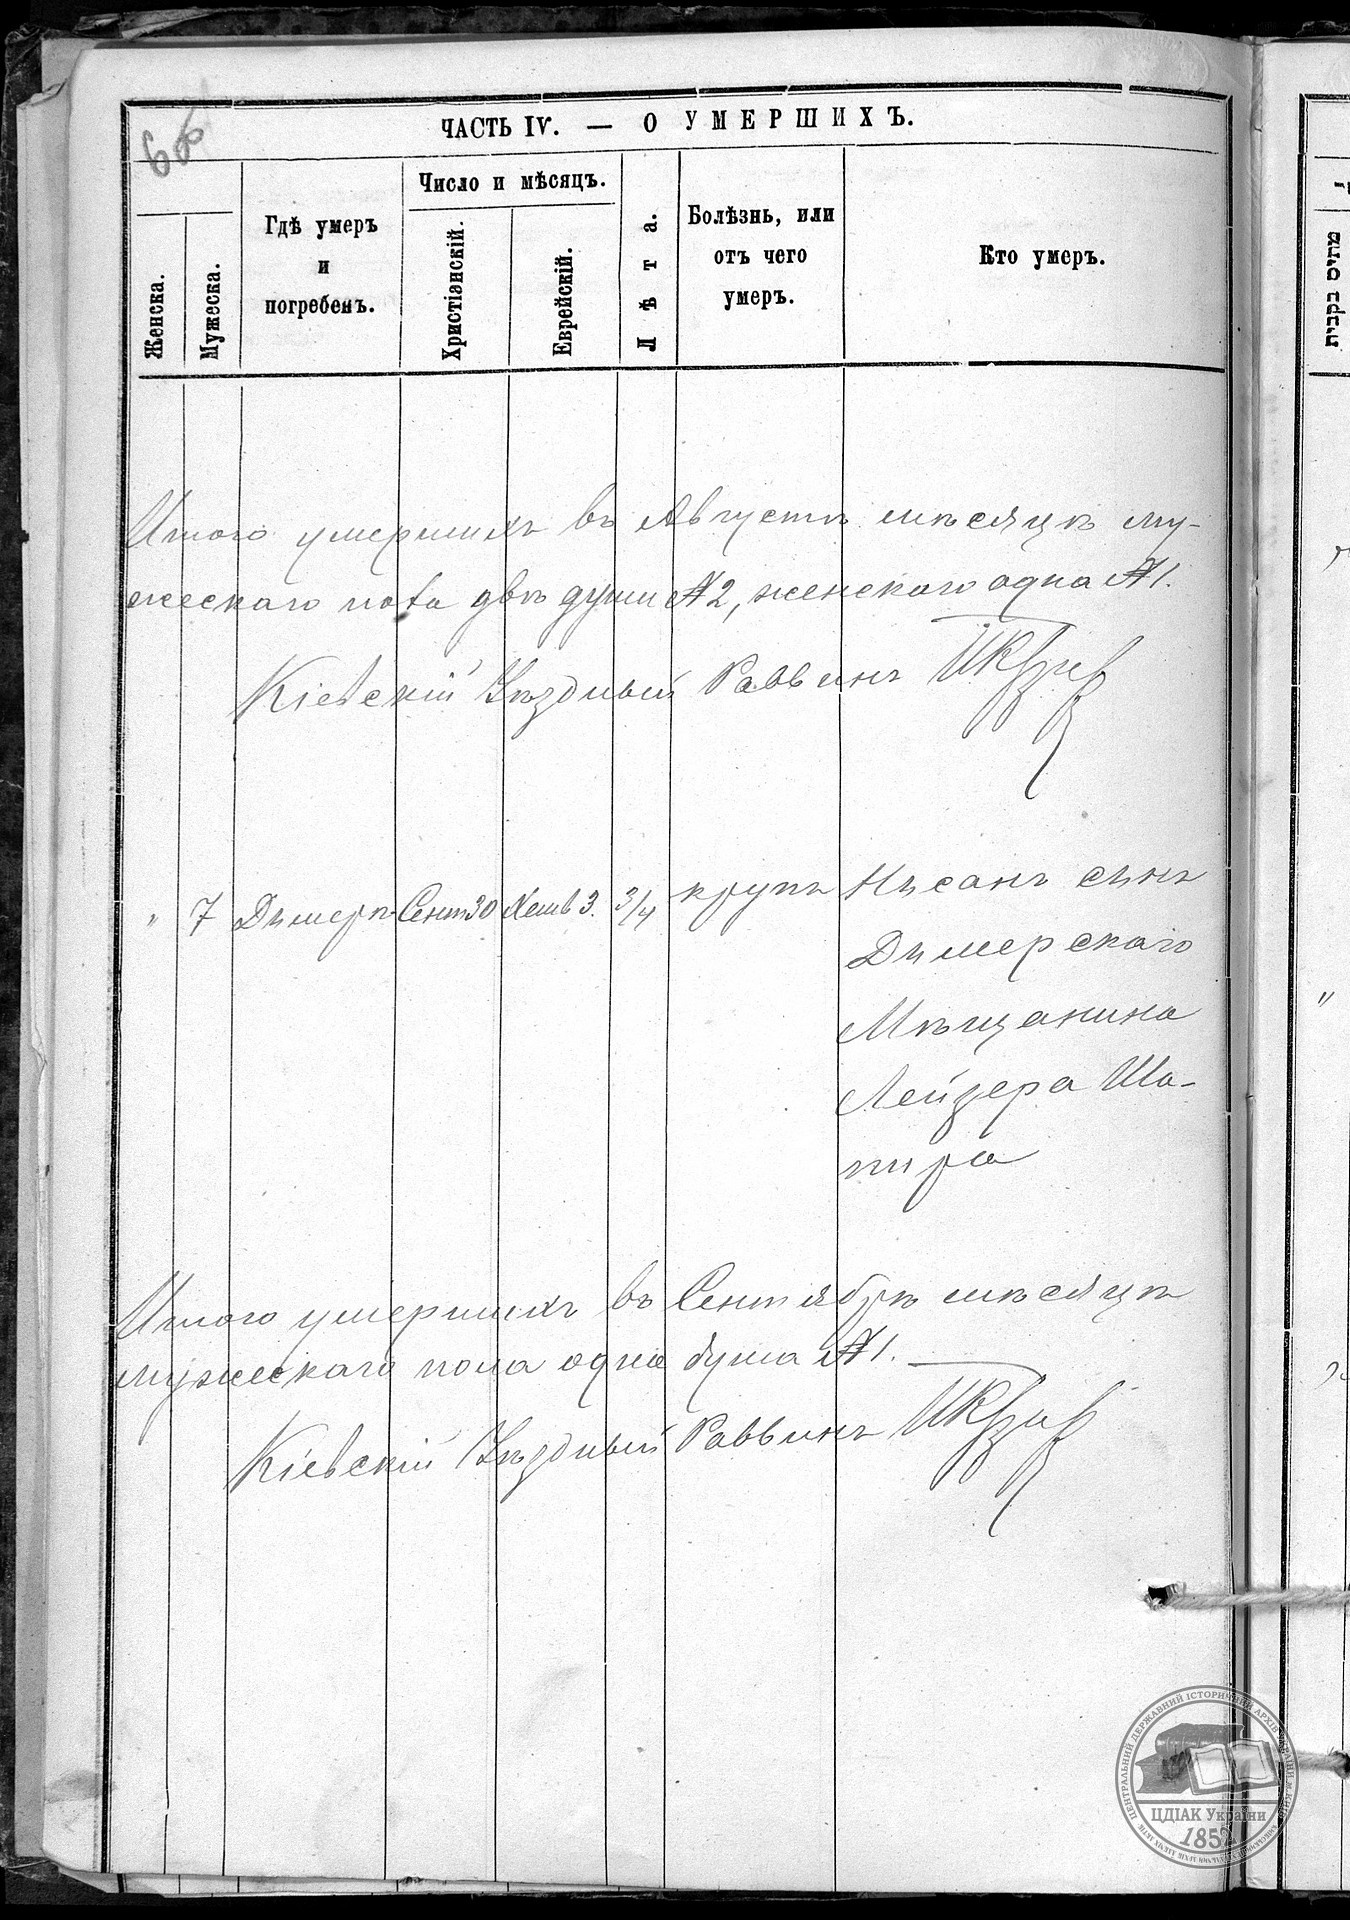 ЧАСТЬ IV. — О УМЕРШИХЪ.
Женска.
Мужеска.
Гдѣ умеръ
и
погребенъ.
Число и мѣсяцъ.
Христіэнскій.
Еврейскій.
Лѣта.
Болѣзнь, или
отъ чего
умеръ.
Кто умеръ.
Итого умершихъ въ Августѣ мѣсяцѣ му-
жескаго пола двѣ души №2, женскаго одна №1.
Кіевскій Уѣздный Раввинъ
" 7 Дымеръ Сент 30 Хешв 3. 3/4 крупъ Нисанъ сынъ
Дымерскаго
Мѣщанина
Лейзера Ша-
пира
Итого умершихъ въ Сентябрѣ мѣсяцѣ
мужескаго пола одна душа №1.
Кіевскій Уѣздный Раввинъ
ЦЕНТРАЛЬНИЙ ДЕРЖАВНИЙ ІСТОРИЧНИЙ АРХІВ УКРАЇНИ м. КИЇВ
ЦДІАК України
1852
מתים בקבית